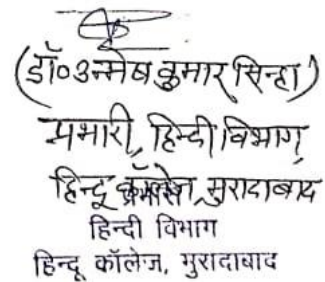 (डॉ० उन्मेष कुमार सिन्हा)
प्रभारी, हिन्दी विभाग,
हिन्दू कॉलेज, मुरादाबाद
हिन्दी विभाग
हिन्दू कॉलेज, मुरादाबाद